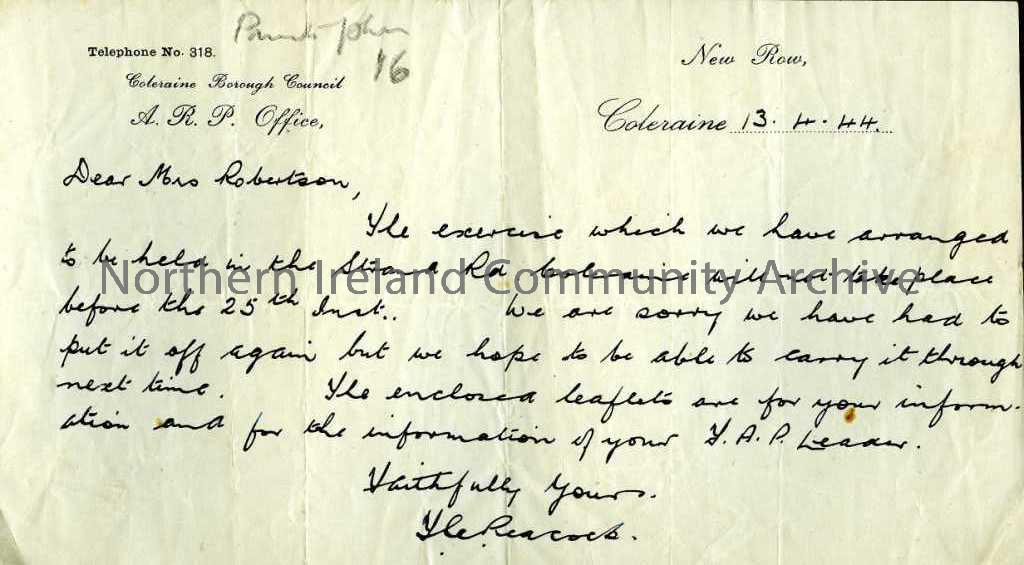 Telephone No. 318.
16
Coleraine Borough Council
A. R. P. Office,
New Row,
Coleraine 13. 4. 44.
Dear Mrs Robertson,
The exercise which we have arranged
to be held in the Strand Rd Coleraine will not take place
Northern Ireland Community Archive
before the 25th Inst.. We are sorry we have had to
put it off again but we hope to be able to carry it through
next time. The enclosed leaflets are for your inform-
ation and for the information of your F. A. P. Leader.
Faithfully Yours.
Peacock.